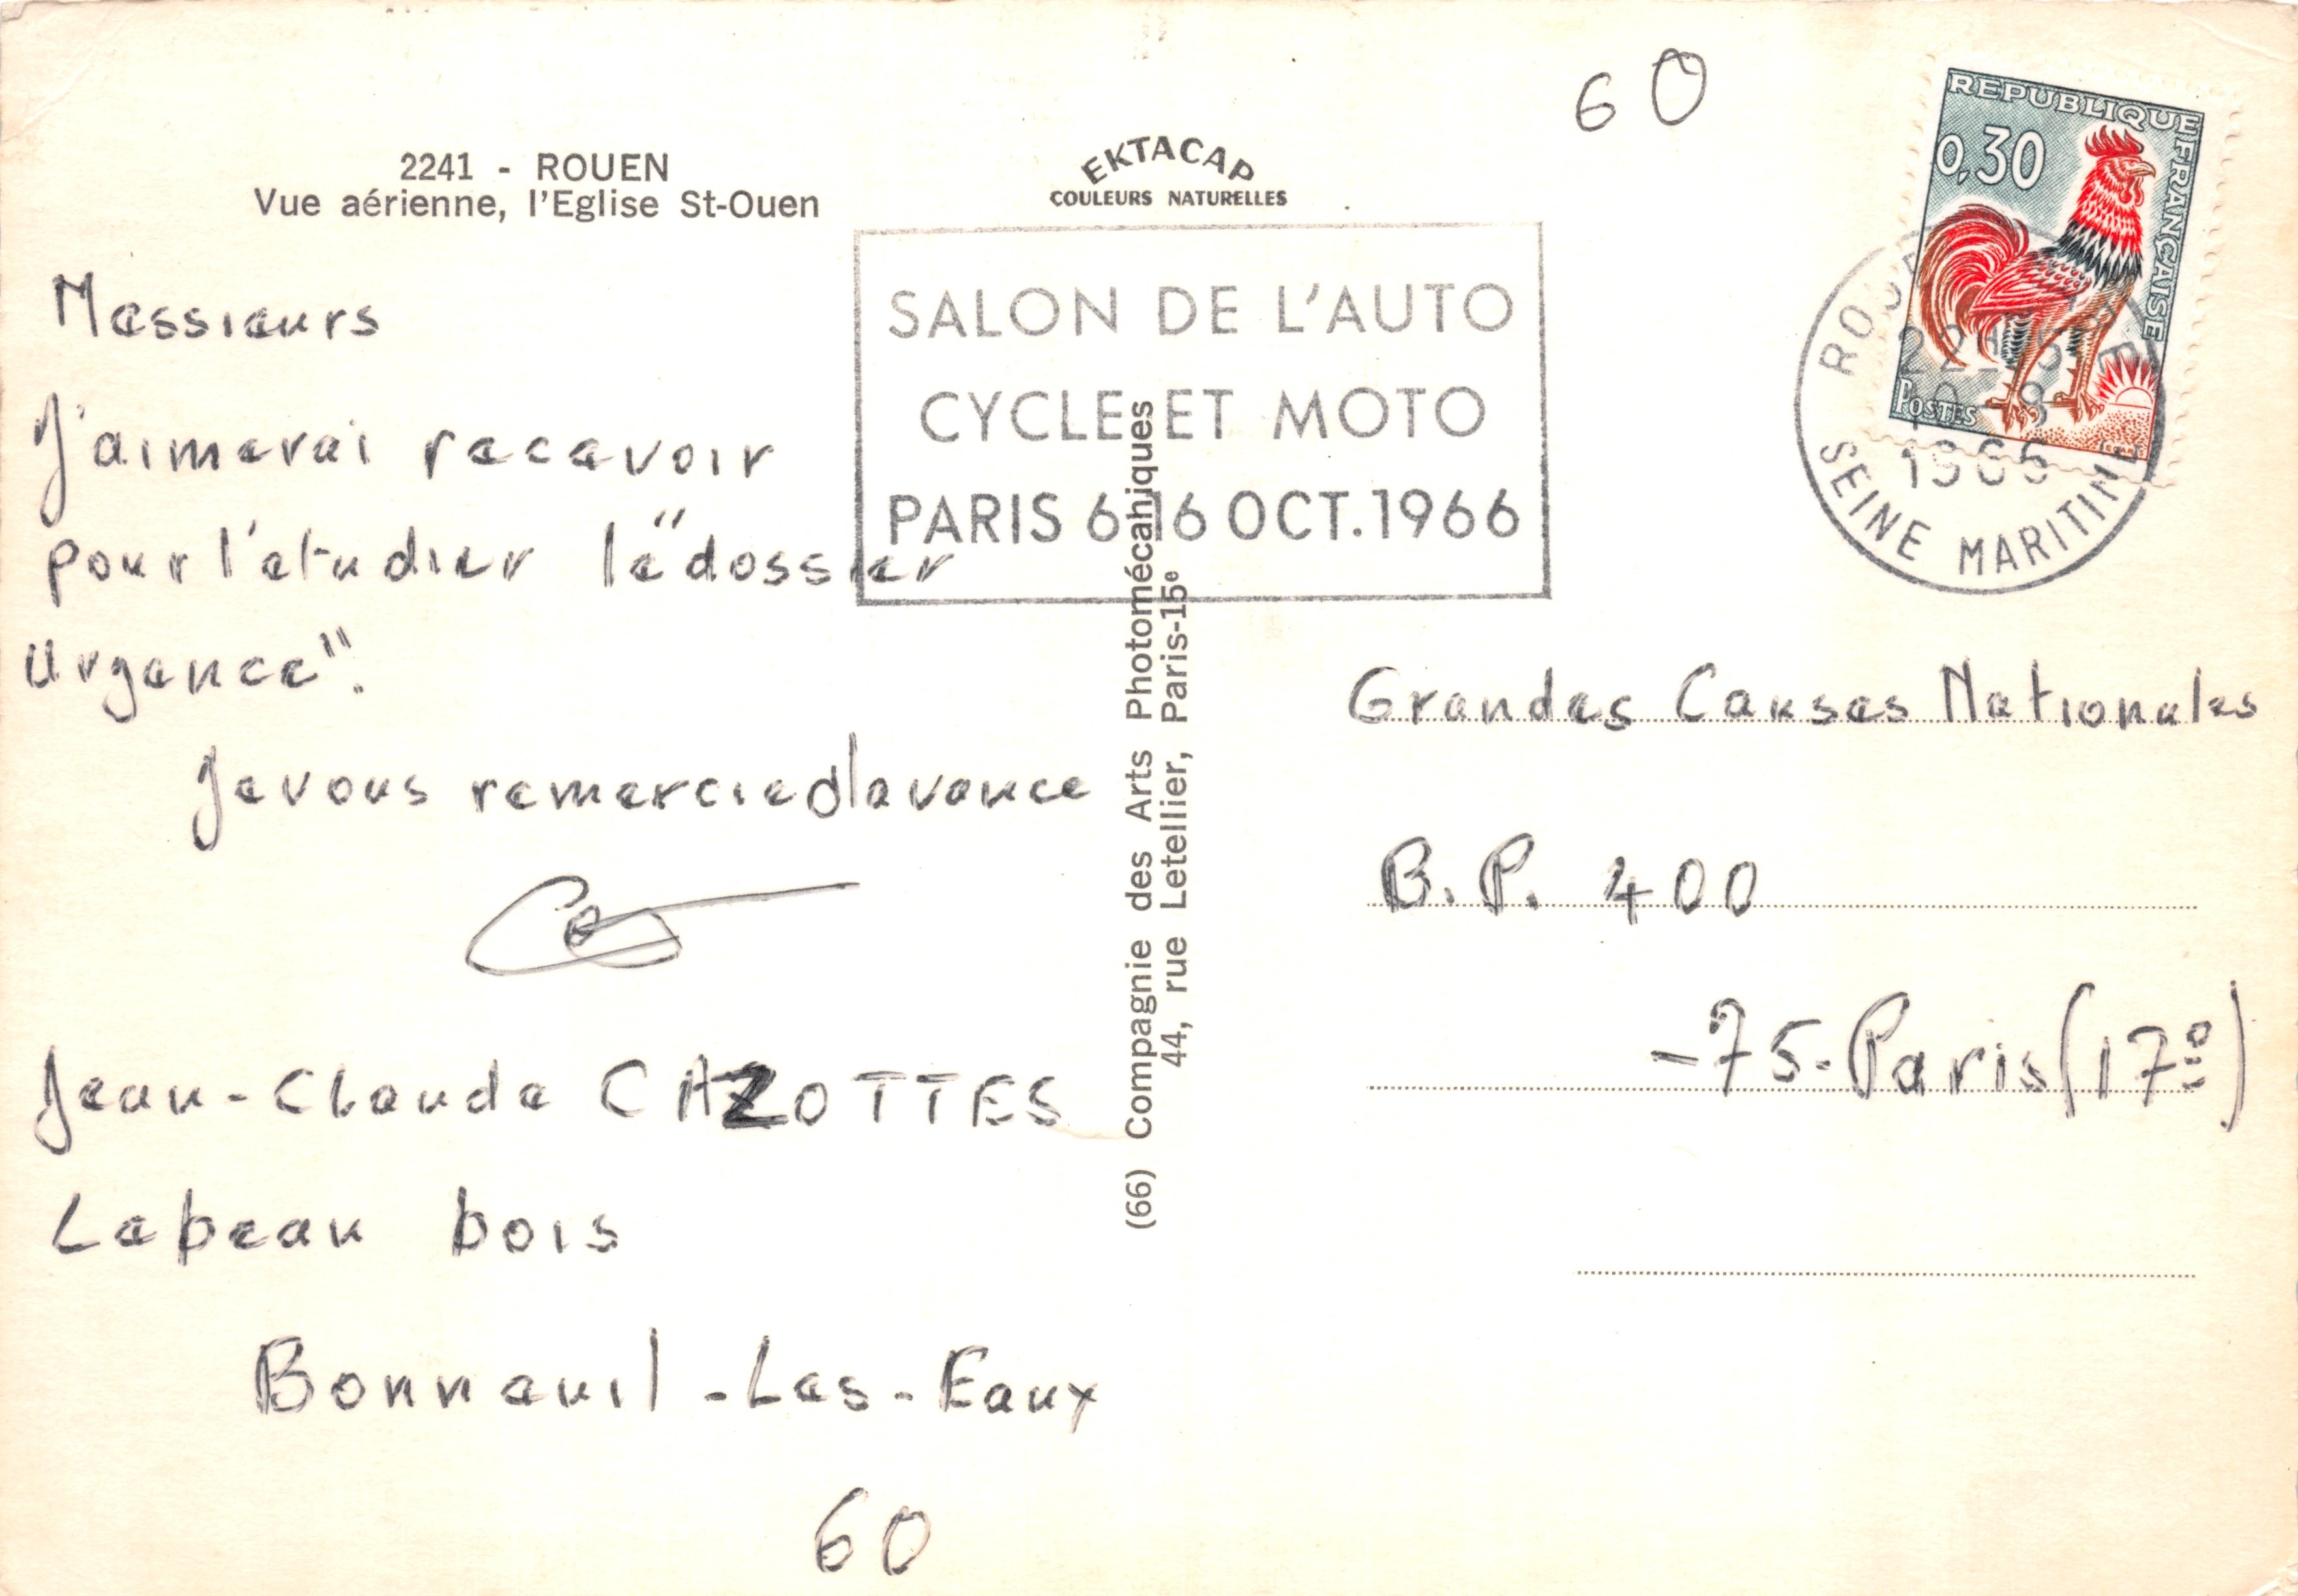 2241 - ROUEN
Vue aérienne, l'Eglise St-Ouen
EKTACAP
COULEURS NATURELLES
60
REPUBLIQUE FRANÇAISE
0,30
POSTES
SALON DE L'AUTO
CYCLE ET MOTO
PARIS 6-16 OCT. 1966
SEINE MARITIME
Messieurs
J'aimerai recevoir
pour l'etudier le "dossier
urgence".
Je vous remercie d'avance
Jean-Claude CAZOTTES
Le beau bois
Bonneuil-Les-Eaux
60
(66) Compagnie des Arts Photomécahiques
44, rue Letellier, Paris-15e
Grandes Causes Nationales
B.P. 400
-75- Paris (17e)